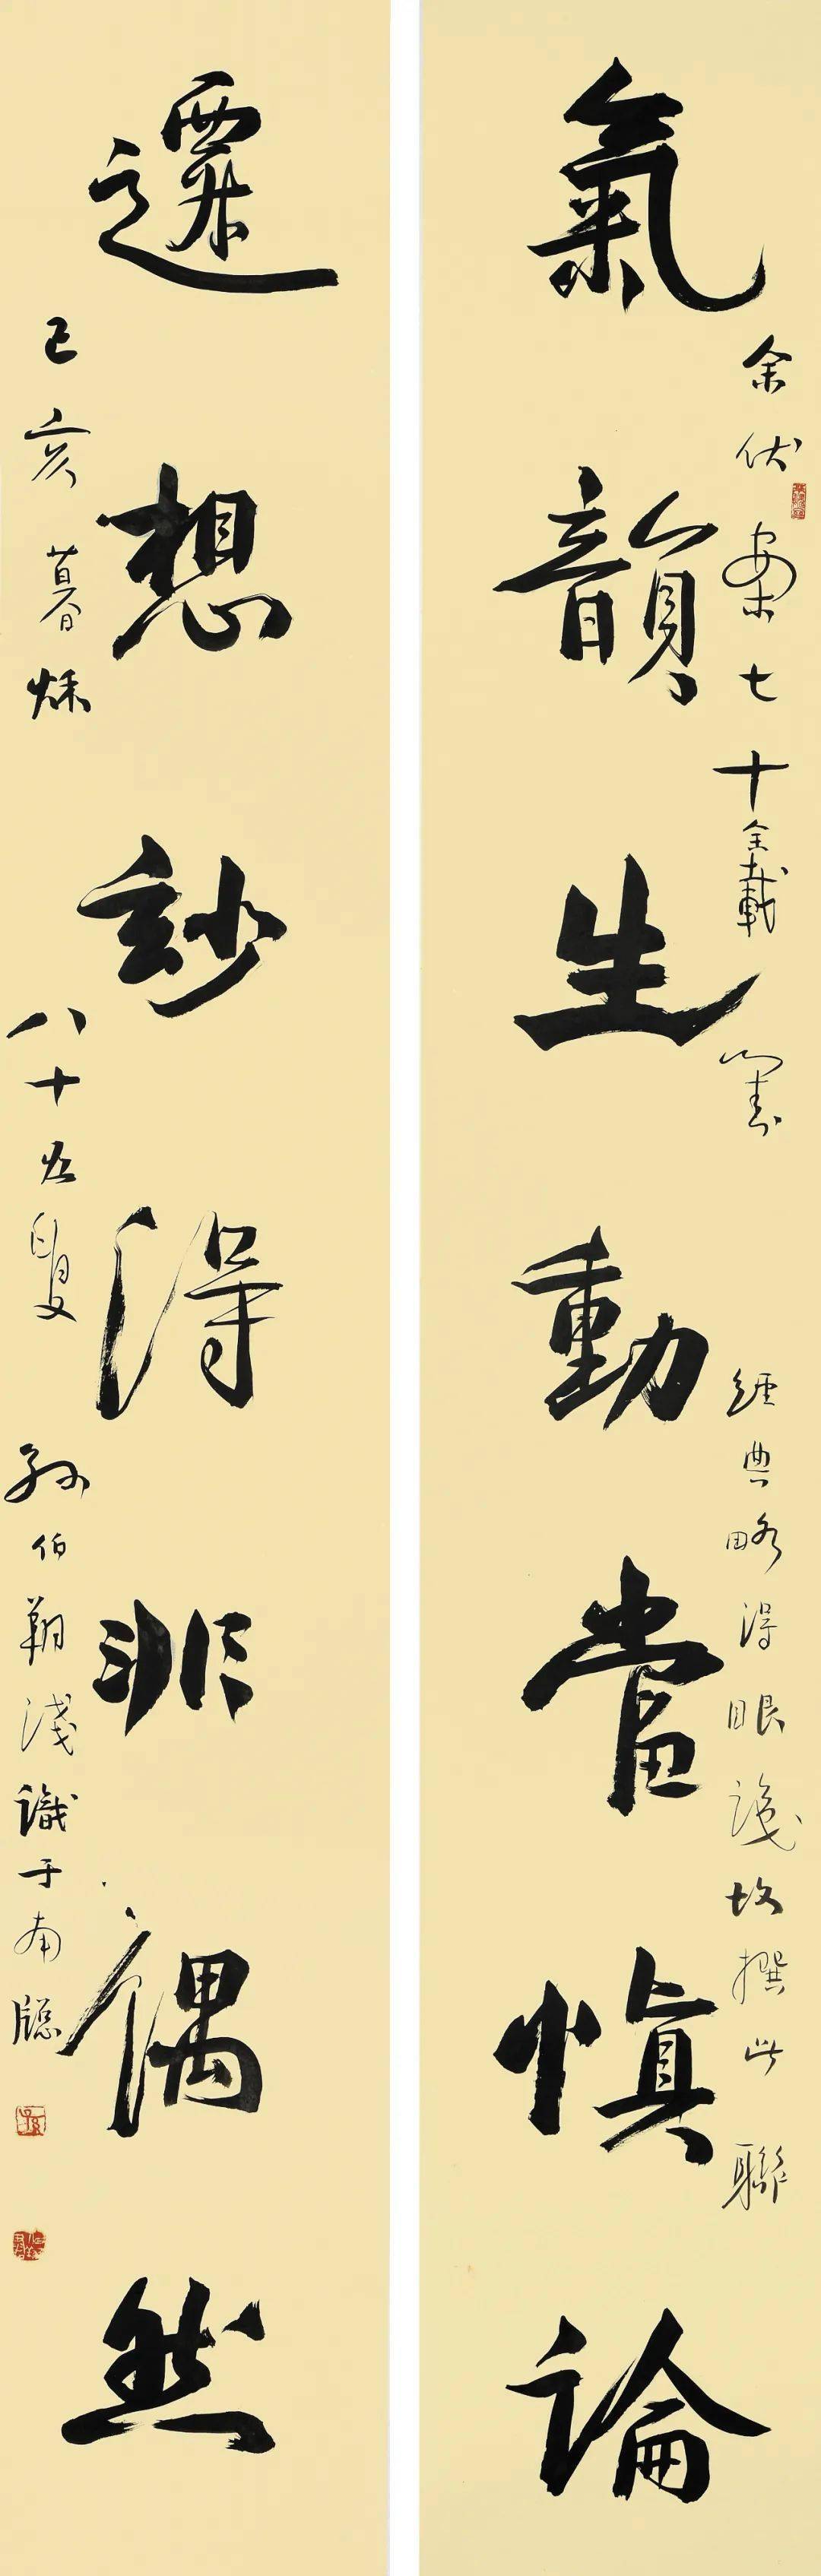 氣韻生動當慎論
余伏案七十余載 經典略得眼識故撰此聯
遷想玅得非偶然
己亥暮秌八十五叟孫伯翔淺識于南牕